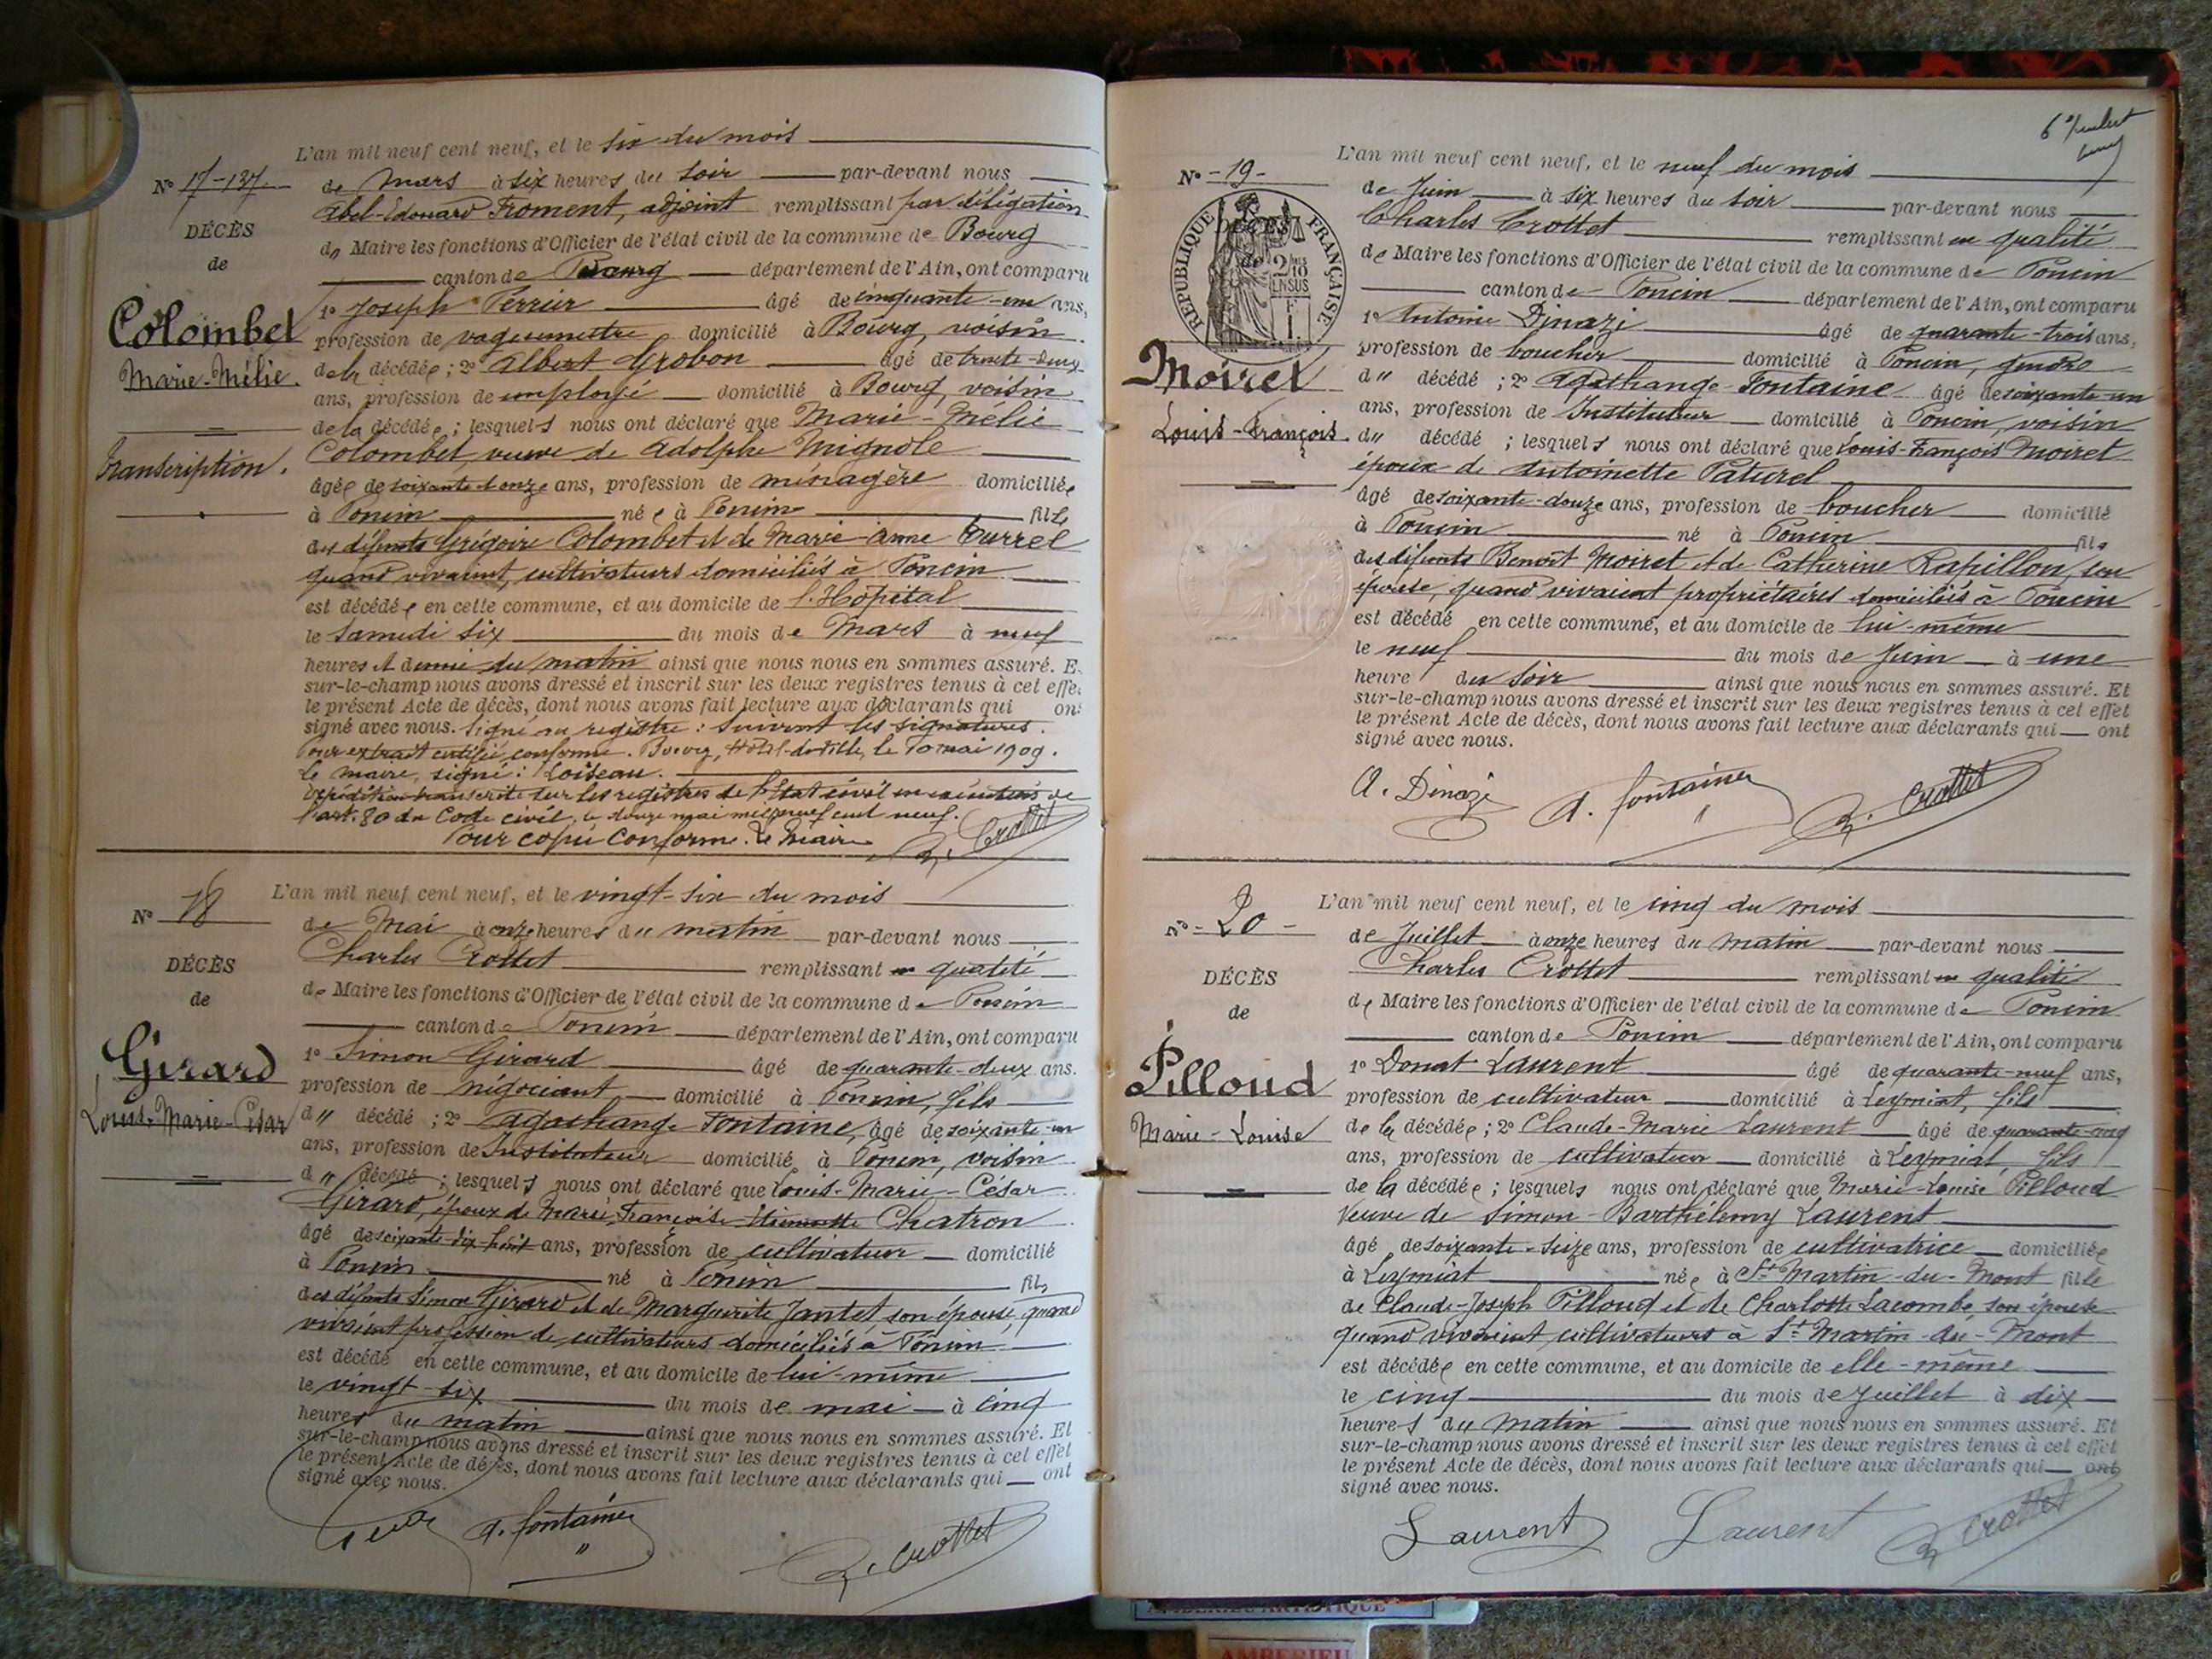 L'an mil neuf cent neuf, et le six du mois
No 17-137
de Mars à six heures du soir par-devant nous
Abel-Edouard Froment, adjoint remplissant par délégation
DÉCÈS
de
du Maire les fonctions d'Officier de l'état civil de la commune de Bourg
canton de Bourg département de l'Ain, ont comparu
1o Joseph Perrier âgé de cinquante-un ans,
Colombet
Marie-Mélie.
profession de vaguemestre domicilié à Bourg, voisin
de la décédée ; 2o Albert Grobon âgé de trente-deux
ans, profession de employé domicilié à Bourg, voisin
de la décédée ; lesquels nous ont déclaré que Marie-Mélie
Transcription.
Colombet, veuve de Adolphe Mignole
âgée de soixante et onze ans, profession de ménagère domiciliée
à Poncin née à Poncin fille
des défunts Grégoire Colombet et de Marie-Anne Courrel
quand vivaient, cultivateurs domiciliés à Poncin
est décédée en cette commune, et au domicile de l'Hôpital
le Samedi six du mois de Mars à neuf
heures et demie du matin ainsi que nous nous en sommes assuré. E
sur-le-champ nous avons dressé et inscrit sur les deux registres tenus à cet effe
le présent Acte de décès, dont nous avons fait lecture aux déclarants qui on
signé avec nous. Signé au registre : Suivent les signatures.
Pour extrait certifié conforme. Bourg, Hôtel-de-Ville, le 10 mai 1909.
Le maire, signé : Loiseau.
Expédition transcrite sur les registres de l'état civil en exécution de
l'art. 80 du Code civil, le douze mai mil neuf cent neuf.
Pour copie conforme. Le Maire
Crottet
L'an mil neuf cent neuf, et le vingt-six du mois
No 18
de Mai à onze heures du matin par-devant nous
Charles Crottet remplissant en qualité
DÉCÈS
de
de Maire les fonctions d'Officier de l'état civil de la commune de Poncin
canton de Poncin département de l'Ain, ont comparu
1o Simon Girard âgé de quarante-deux ans.
Girard
Louis-Marie-César
profession de négociant domicilié à Poncin, fils
du décédé ; 2o Agathange Fontaine, âgé de soixante-un
ans, profession de Instituteur domicilié à Poncin, voisin
du décédé ; lesquels nous ont déclaré que Louis-Marie-César
Girard, époux de Marie Françoise Etiennette Chatron
âgé de soixante-dix-huit ans, profession de cultivateur domicilié
à Poncin né à Poncin fils
des défunts Simon Girard et de Marguerite Jantet son épouse, quand
vivaient profession de cultivateurs domiciliés à Poncin
est décédé en cette commune, et au domicile de lui-même
le vingt-six du mois de mai à cinq
heures du matin ainsi que nous nous en sommes assuré. Et
sur-le-champ nous avons dressé et inscrit sur les deux registres tenus à cet effet
le présent Acte de décès, dont nous avons fait lecture aux déclarants qui ont
signé avec nous.
A. fontaine
Crottet
6e
L'an mil neuf cent neuf, et le neuf du mois
No -19-
de Juin à six heures du soir par-devant nous
Charles Crottet remplissant en qualité
RÉPUBLIQUE FRANÇAISE
DÉCÈS
de
de Maire les fonctions d'Officier de l'état civil de la commune de Poncin
canton de Poncin département de l'Ain, ont comparu
1o Antoine Dinazi âgé de quarante-trois ans,
Moiret
Louis-François.
profession de boucher domicilié à Poncin, gendre
du décédé ; 2o Agathange Fontaine âgé de soixante-un
ans, profession de Instituteur domicilié à Poncin, voisin
du décédé ; lesquels nous ont déclaré que Louis-François Moiret
époux de Antoinette Paturel
âgé de soixante-douze ans, profession de boucher domicilié
à Poncin né à Poncin fils
des défunts Benoît Moiret et de Catherine Rapillon, son
épouse, quand vivaient propriétaires domiciliés à Poncin
est décédé en cette commune, et au domicile de lui-même
le neuf du mois de Juin à une
heure du soir ainsi que nous nous en sommes assuré. Et
sur-le-champ nous avons dressé et inscrit sur les deux registres tenus à cet effet
le présent Acte de décès, dont nous avons fait lecture aux déclarants qui ont
signé avec nous.
A. Dinazi A. fontaine Crottet
L'an mil neuf cent neuf, et le cinq du mois
No -20-
de Juillet à onze heures du matin par-devant nous
Charles Crottet remplissant en qualité
DÉCÈS
de
de Maire les fonctions d'Officier de l'état civil de la commune de Poncin
canton de Poncin département de l'Ain, ont comparu
1o Donat Laurent âgé de quarante-neuf ans,
Pilloud
Marie-Louise
profession de cultivateur domicilié à Leymiat, fils
de la décédée ; 2o Claude-Marie Laurent âgé de quarante-cinq
ans, profession de cultivateur domicilié à Leymiat, fils
de la décédée ; lesquels nous ont déclaré que Marie-Louise Pilloud
veuve de Simon-Barthélemy Laurent
âgé de soixante-seize ans, profession de cultivatrice domiciliée
à Leymiat née à St Martin-du-Mont fille
de Claude-Joseph Pilloud et de Charlotte Lacombe son épouse
quand vivaient cultivateurs à St Martin-du-Mont
est décédée en cette commune, et au domicile de elle-même
le cinq du mois de Juillet à dix
heures du matin ainsi que nous nous en sommes assuré. Et
sur-le-champ nous avons dressé et inscrit sur les deux registres tenus à cet effet
le présent Acte de décès, dont nous avons fait lecture aux déclarants qui ont
signé avec nous.
Laurent Laurent Crottet
AMBERIEU